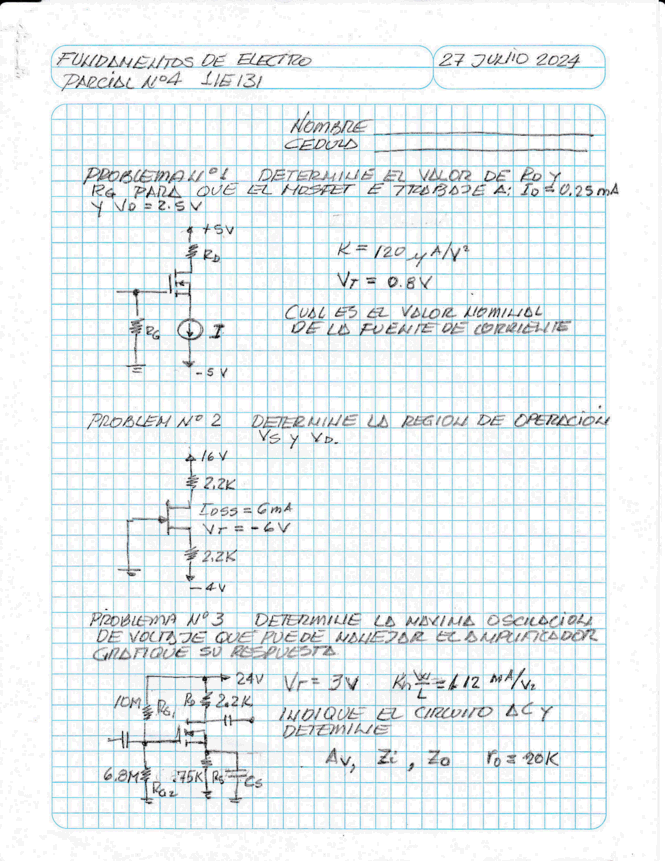 FUNDAMENTOS DE ELECTRO
27 JUNIO 2024
PARCIAL Nº4 1IE131
NOMBRE
CEDULA
PROBLEMA Nº1 DETERMINE EL VALOR DE RD Y
RG PARA QUE EL MOSFET E TRABAJE A: ID = 0.25 mA
Y VD = 2.5 V
+5V
RD
K = 120 µA/V²
VT = 0.8V
CUAL ES EL VALOR NOMINAL
DE LA FUENTE DE CORRIENTE
RG
I
-5V
PROBLEM Nº 2 DETERMINE LA REGION DE OPERACION
VS Y VD.
16V
2.2K
IDSS = 6mA
VT = -6V
2.2K
-4V
PROBLEMA Nº3 DETERMINE LA MAXIMA OSCILACION
DE VOLTAJE QUE PUEDE MANEJAR EL AMPLIFICADOR
GRAFIQUE SU RESPUESTA
24V
VT = 3V
Kn W/L = 1.12 mA/V2
10M
RG1
RD
2.2K
INDIQUE EL CIRCUITO AC Y
DETEMINE
AV, Zi, Zo ro = 20K
6.8M
RG2
.75K
RS
CS